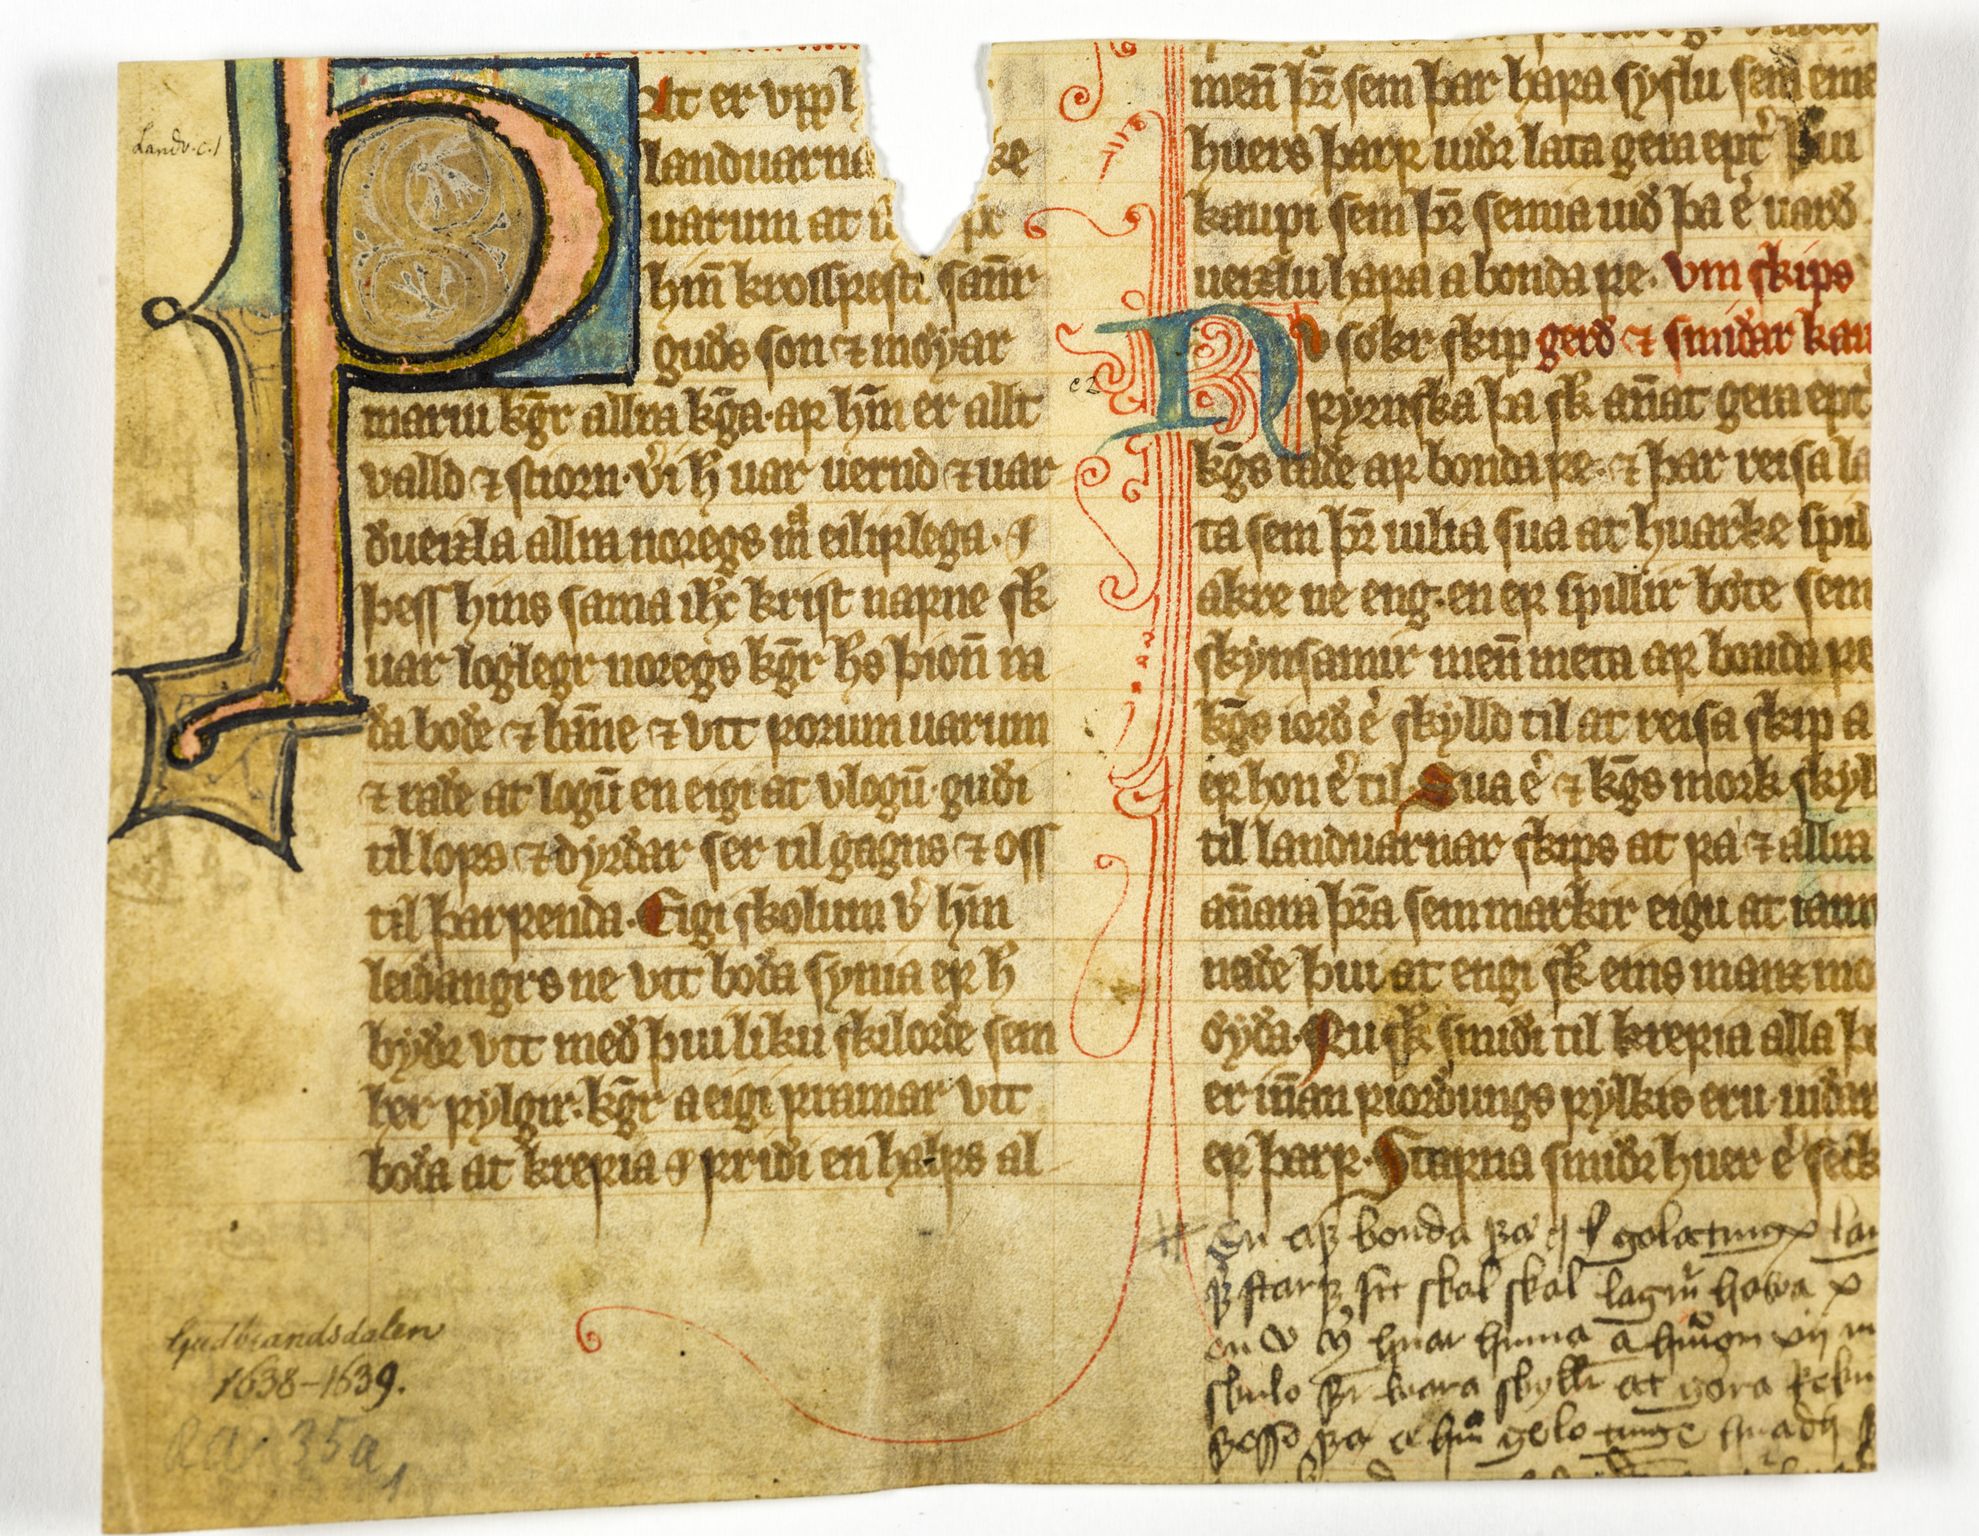 Þat er vpph
landuarnar ke
uarum at u er
hin̄ krossfesti sannr
guðs son ⁊ meyiar
mariu kḡr allra kḡa·af hm̄ er allt
valld ⁊ stiorn·v̓i h̄ uar uernd ⁊ uar
ðueizla allra noregs m̄ eiliflega·⁊
þess hins sama ih̄c krist nafne sk
uar loglegr noregs kḡr hs̄ þion̄ ra
ða boðe ⁊ ban̄e ⁊ vtt forum uarum
⁊ raðe at logū en eigi at vlogū·guði
til lofs ⁊ dyrðar ser til gagns ⁊ oss
til þarfenda·Eigi skolum v̓ hm̄
leiðangrs ne vtt boða synia ef h̄
byðr vtt með þui liku skilorðe sem
her fylgir·kḡr a eigi framar vtt
boða at krefia ⁊ friði en halfs al
men̄ þr̄ sem þar hafa syslu sem eine
huers þarf uiðr lata gera eptˀ þui
kaupi sem þr̄ semia uið þa e᷎ uarð
ueizlu hafa a bonda fe· vm skips
Nv sokr skip gerð ⁊ smiðar kau
fyrnska þa sk an̄at gera ept
kḡs raðe af bonda fe·⁊ þar reisa la
ta sem þr̄ uilia sua at huarke spil
akre ne eng·en ef spillir bote sem
skynsamir men̄ meta af bonda fe
kḡs iorð e᷎ skylld til at reisa skip a
ef hon e᷎ til Sua e᷎ ⁊ kḡs mork skyl
til landuarnar skips at fa ⁊ allra
an̄ara þr̄a sem markir eigu at iam
naðe þui at engi sk eins manz mo
ðyða·Nu sk smiði til krefia alla þe
er in̄an fiorðungs fylkis eru·uiðar
ef þarf·Stafna smiðr huer e᷎ seck
En af bonda
Landv. c. 1
c 2
Gudbrandsdalen
1638–1639.
Ra. 35a
1